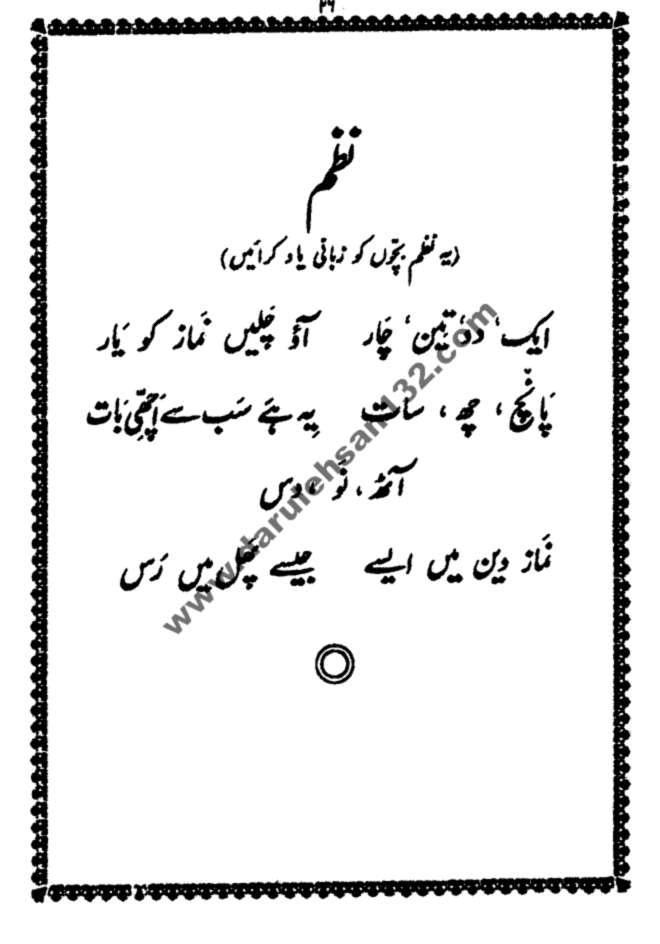 ۳۶
نظم
(یہ نظم بچّوں کو زبانی یاد کرائیں)
ایک، دو، تین، چَار آؤ چَلیں نمَاز کو یَار
پَانچ، چھ، سَات یِہ ہَے سَب سے اَچھّی بَات
آٹھ، نَو، دس
نمَاز دین میں ایسے جیسے پھَل میں رَس
www.darulehsan132.com